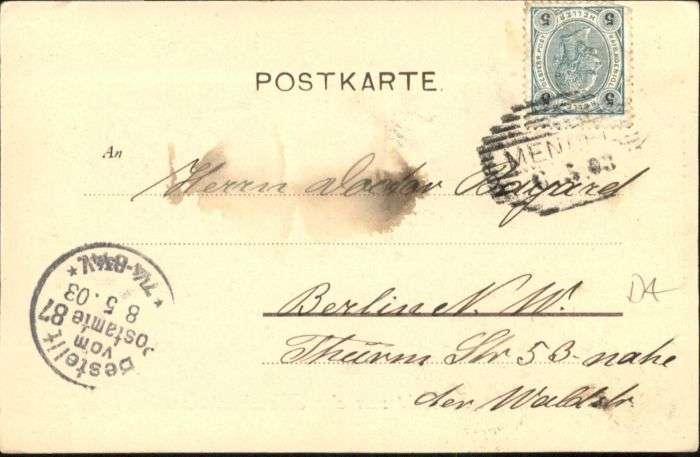 POSTKARTE.
5 HELLER 5
MEN
5.03
An
Herrn Doctor Bayard
Berlin N. W.
DA
Thurm Str 53 nahe
der Waldstr
Bestellt
vom
Postamte 87
8 5.03
* 7¼-8½V. *